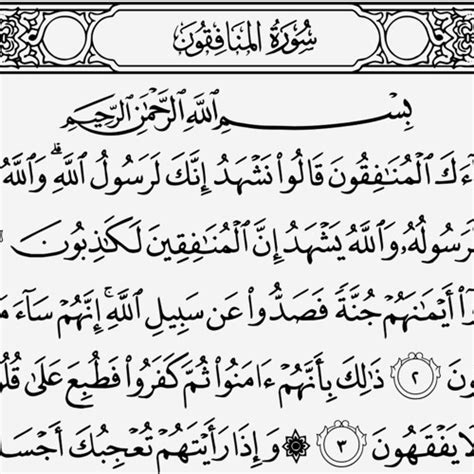 سُورَةُ المُنَافِقُونَ
بِسْمِ اللَّهِ الرَّحْمَٰنِ الرَّحِيمِ
آءَكَ الْمُنَافِقُونَ قَالُوا نَشْهَدُ إِنَّكَ لَرَسُولُ اللَّهِ ۗ وَاللَّهُ
لَرَسُولُهُ وَاللَّهُ يَشْهَدُ إِنَّ الْمُنَافِقِينَ لَكَاذِبُونَ
وا أَيْمَانَهُمْ جُنَّةً فَصَدُّوا عَن سَبِيلِ اللَّهِ ۚ إِنَّهُمْ سَاءَ مَ
ونَ ٢ ذَالِكَ بِأَنَّهُمْ ءَامَنُوا ثُمَّ كَفَرُوا فَطُبِعَ عَلَىٰ قُلُ
لَا يَفْقَهُونَ ٣ ۞ وَإِذَا رَأَيْتَهُمْ تُعْجِبُكَ أَجْسَا